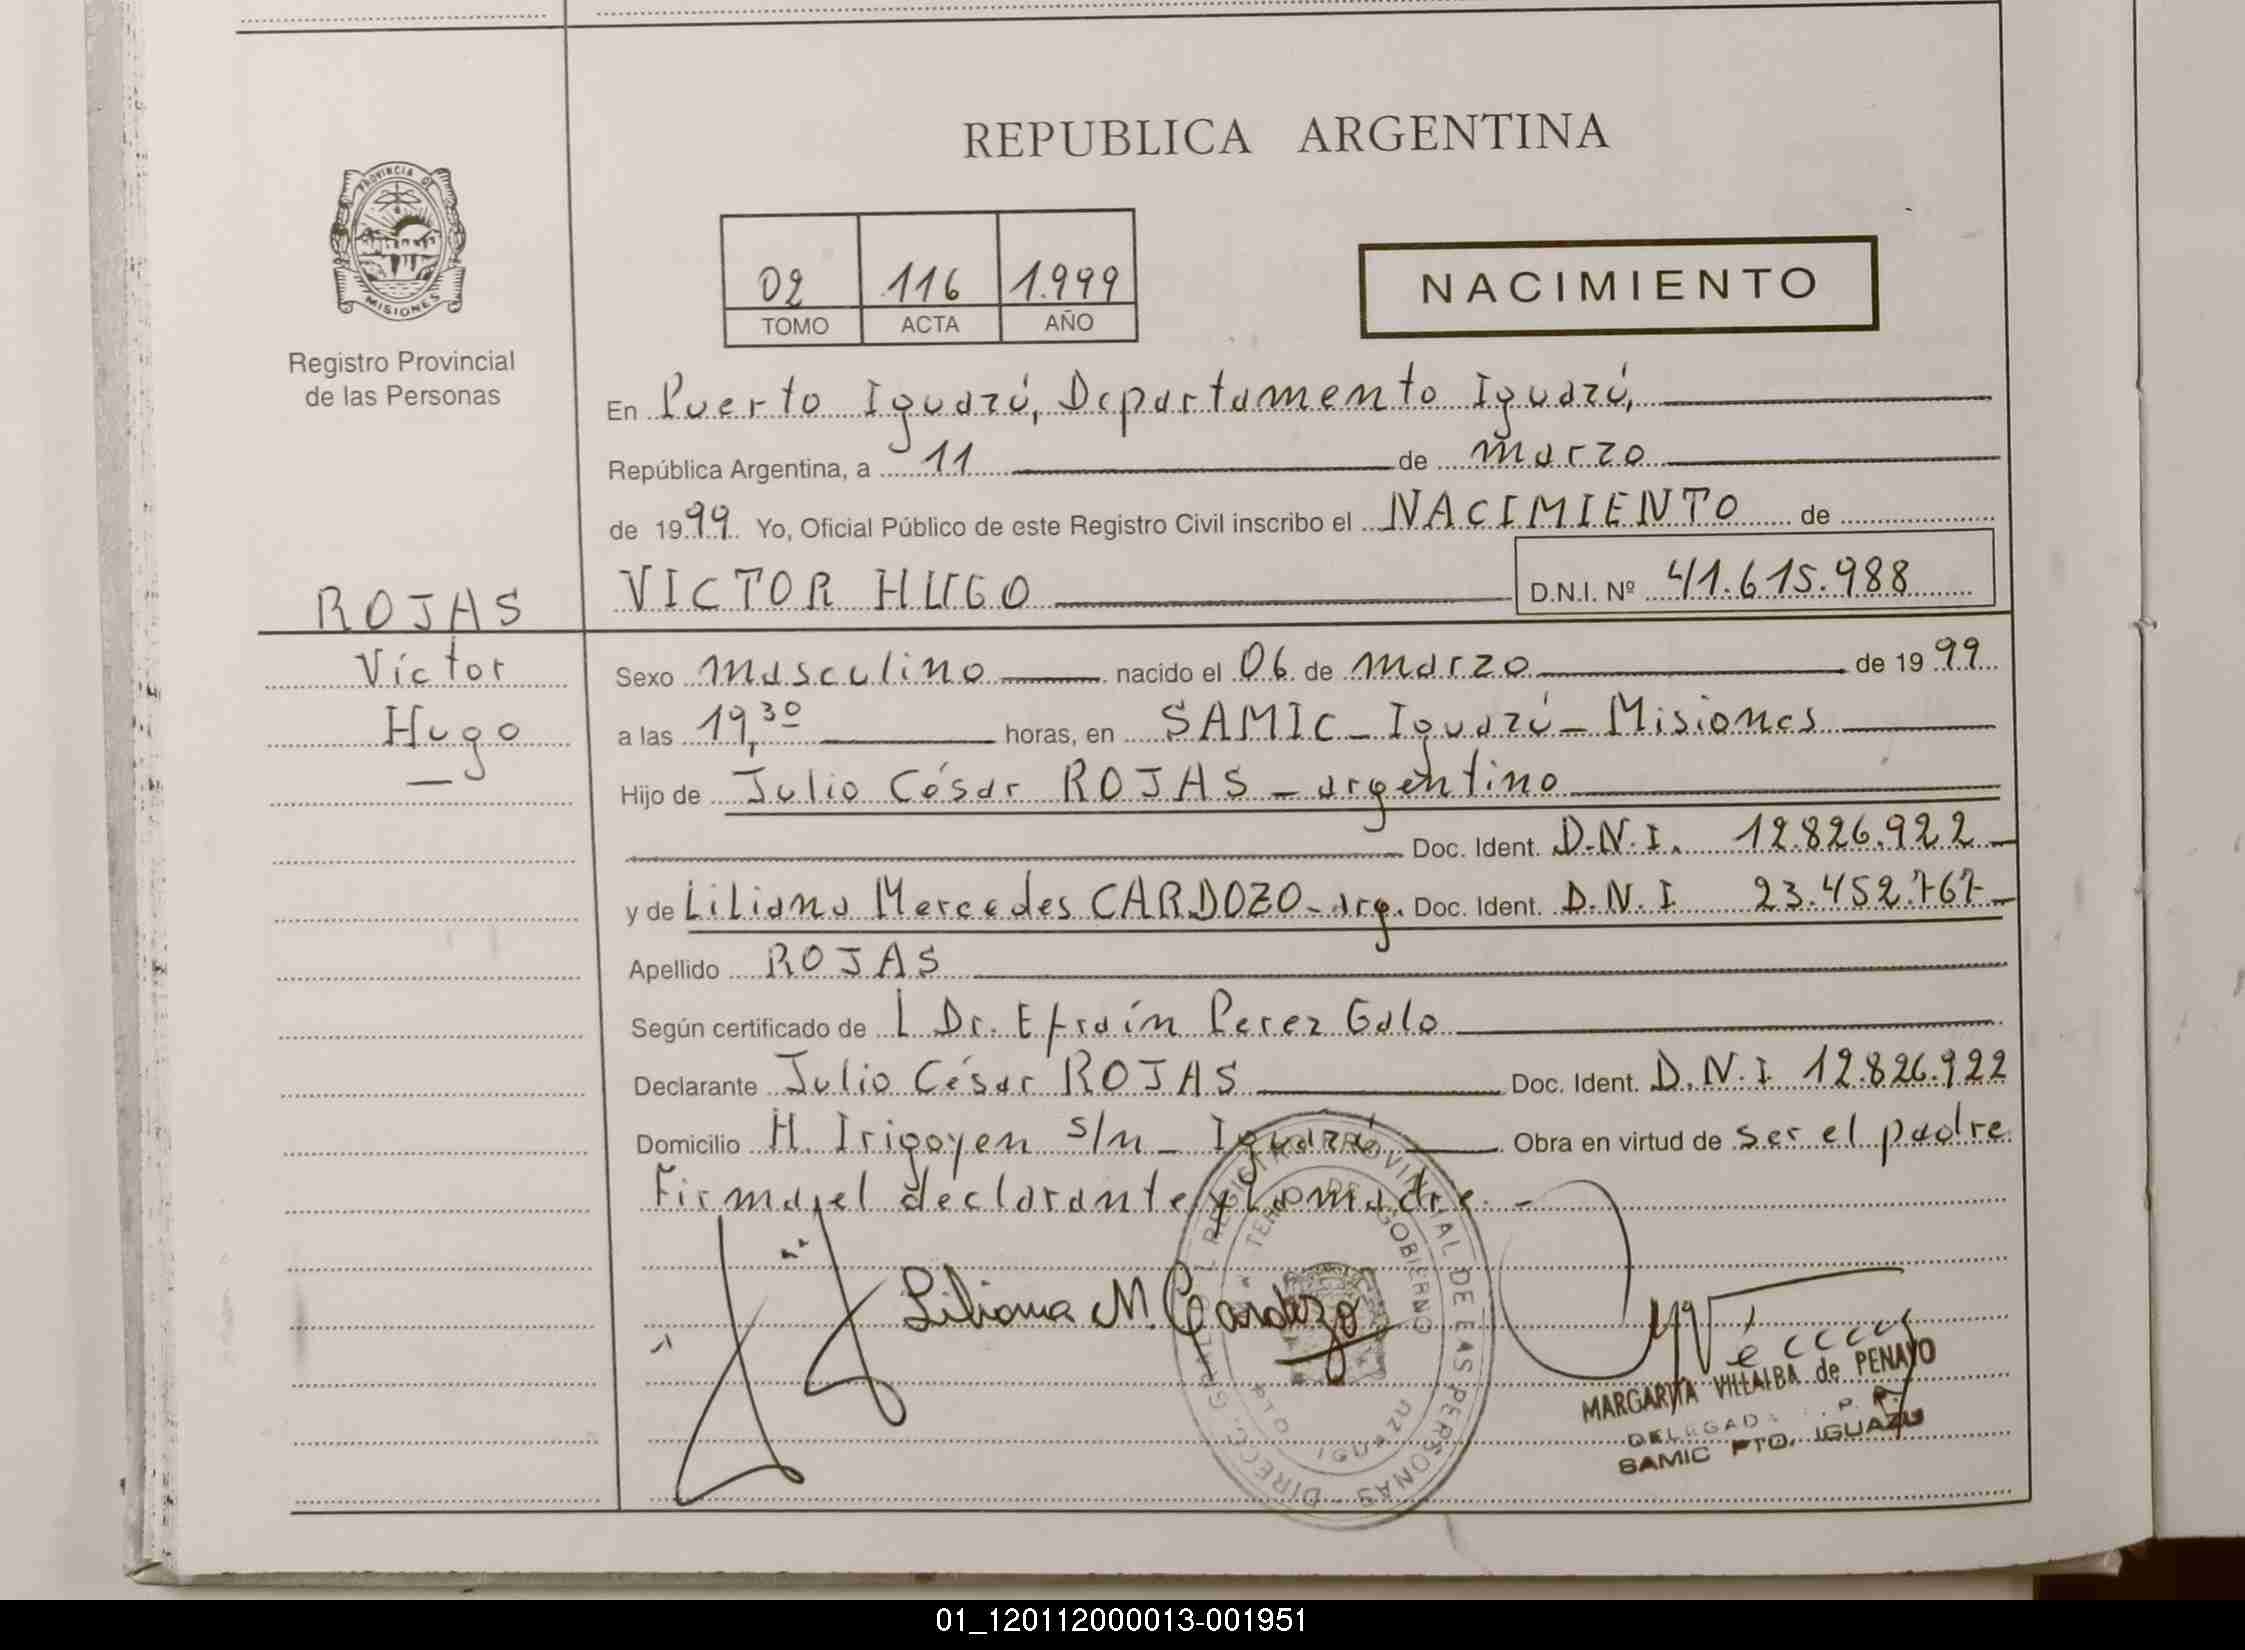 REPUBLICA ARGENTINA
PROVINCIA DE
MISIONES
Registro Provincial
de las Personas
02 116 1.999
TOMO ACTA AÑO
NACIMIENTO
En Puerto Iguazú, Departamento Iguazú,
República Argentina, a 11 de marzo
de 1999. Yo, Oficial Público de este Registro Civil inscribo el NACIMIENTO de
VICTOR HUGO D.N.I. Nº 41.615.988
ROJAS
Víctor
Hugo
Sexo masculino nacido el 06 de marzo de 1999
a las 19,30 horas, en SAMIC - Iguazú - Misiones
Hijo de Julio César ROJAS - argentino
Doc. Ident. D.N.I. 12.826.922
y de Liliana Mercedes CARDOZO - arg. Doc. Ident. D.N.I 23.452.767
Apellido ROJAS
Según certificado de l Dr. Efraín Perez Galo
Declarante Julio César ROJAS Doc. Ident. D.N.I 12.826.922
Domicilio H. Irigoyen s/n - Iguazú Obra en virtud de ser el padre
Firma el declarante y la madre. -
Liliana M. Cardozo
DIRECC. GRAL. REGISTRO PROVINCIAL DE LAS PERSONAS
DE GOBIERNO
IGUAZU
MARGARITA VILLALBA de PENAYO
SAMIC PTO. IGUAZU
01_120112000013-001951